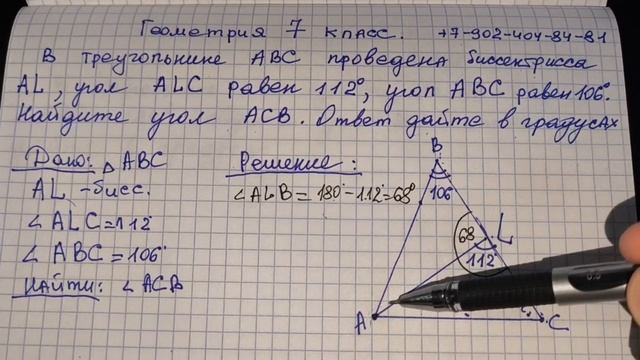 Геометрия 7 класс. +7-902-404-84-81
В треугольнике ABC проведена биссектрисса
AL, угол ALC равен 112°, угол ABC равен 106°.
Найдите угол ACB. Ответ дайте в градусах
Дано: △ABC
AL - бисс.
∠ALC=112°
∠ABC=106°
Найти: ∠ACB
Решение:
∠ALB = 180°-112°=68°
B
106
68
L
112°
A
C
0.5